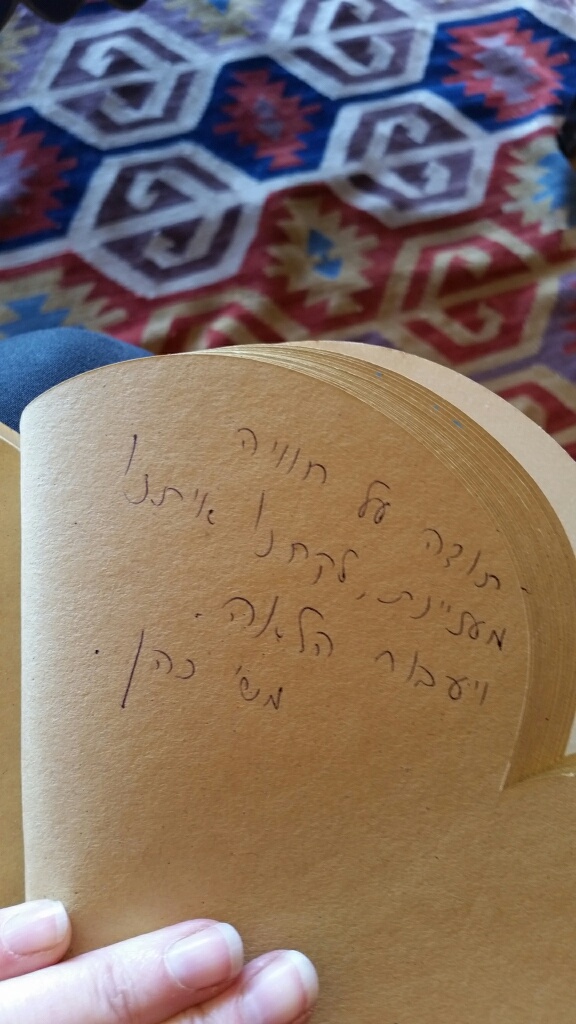 תודה על חוויה
מעניינת, לקחנו איתנו
ויעבור הלאה.
משי כהן.